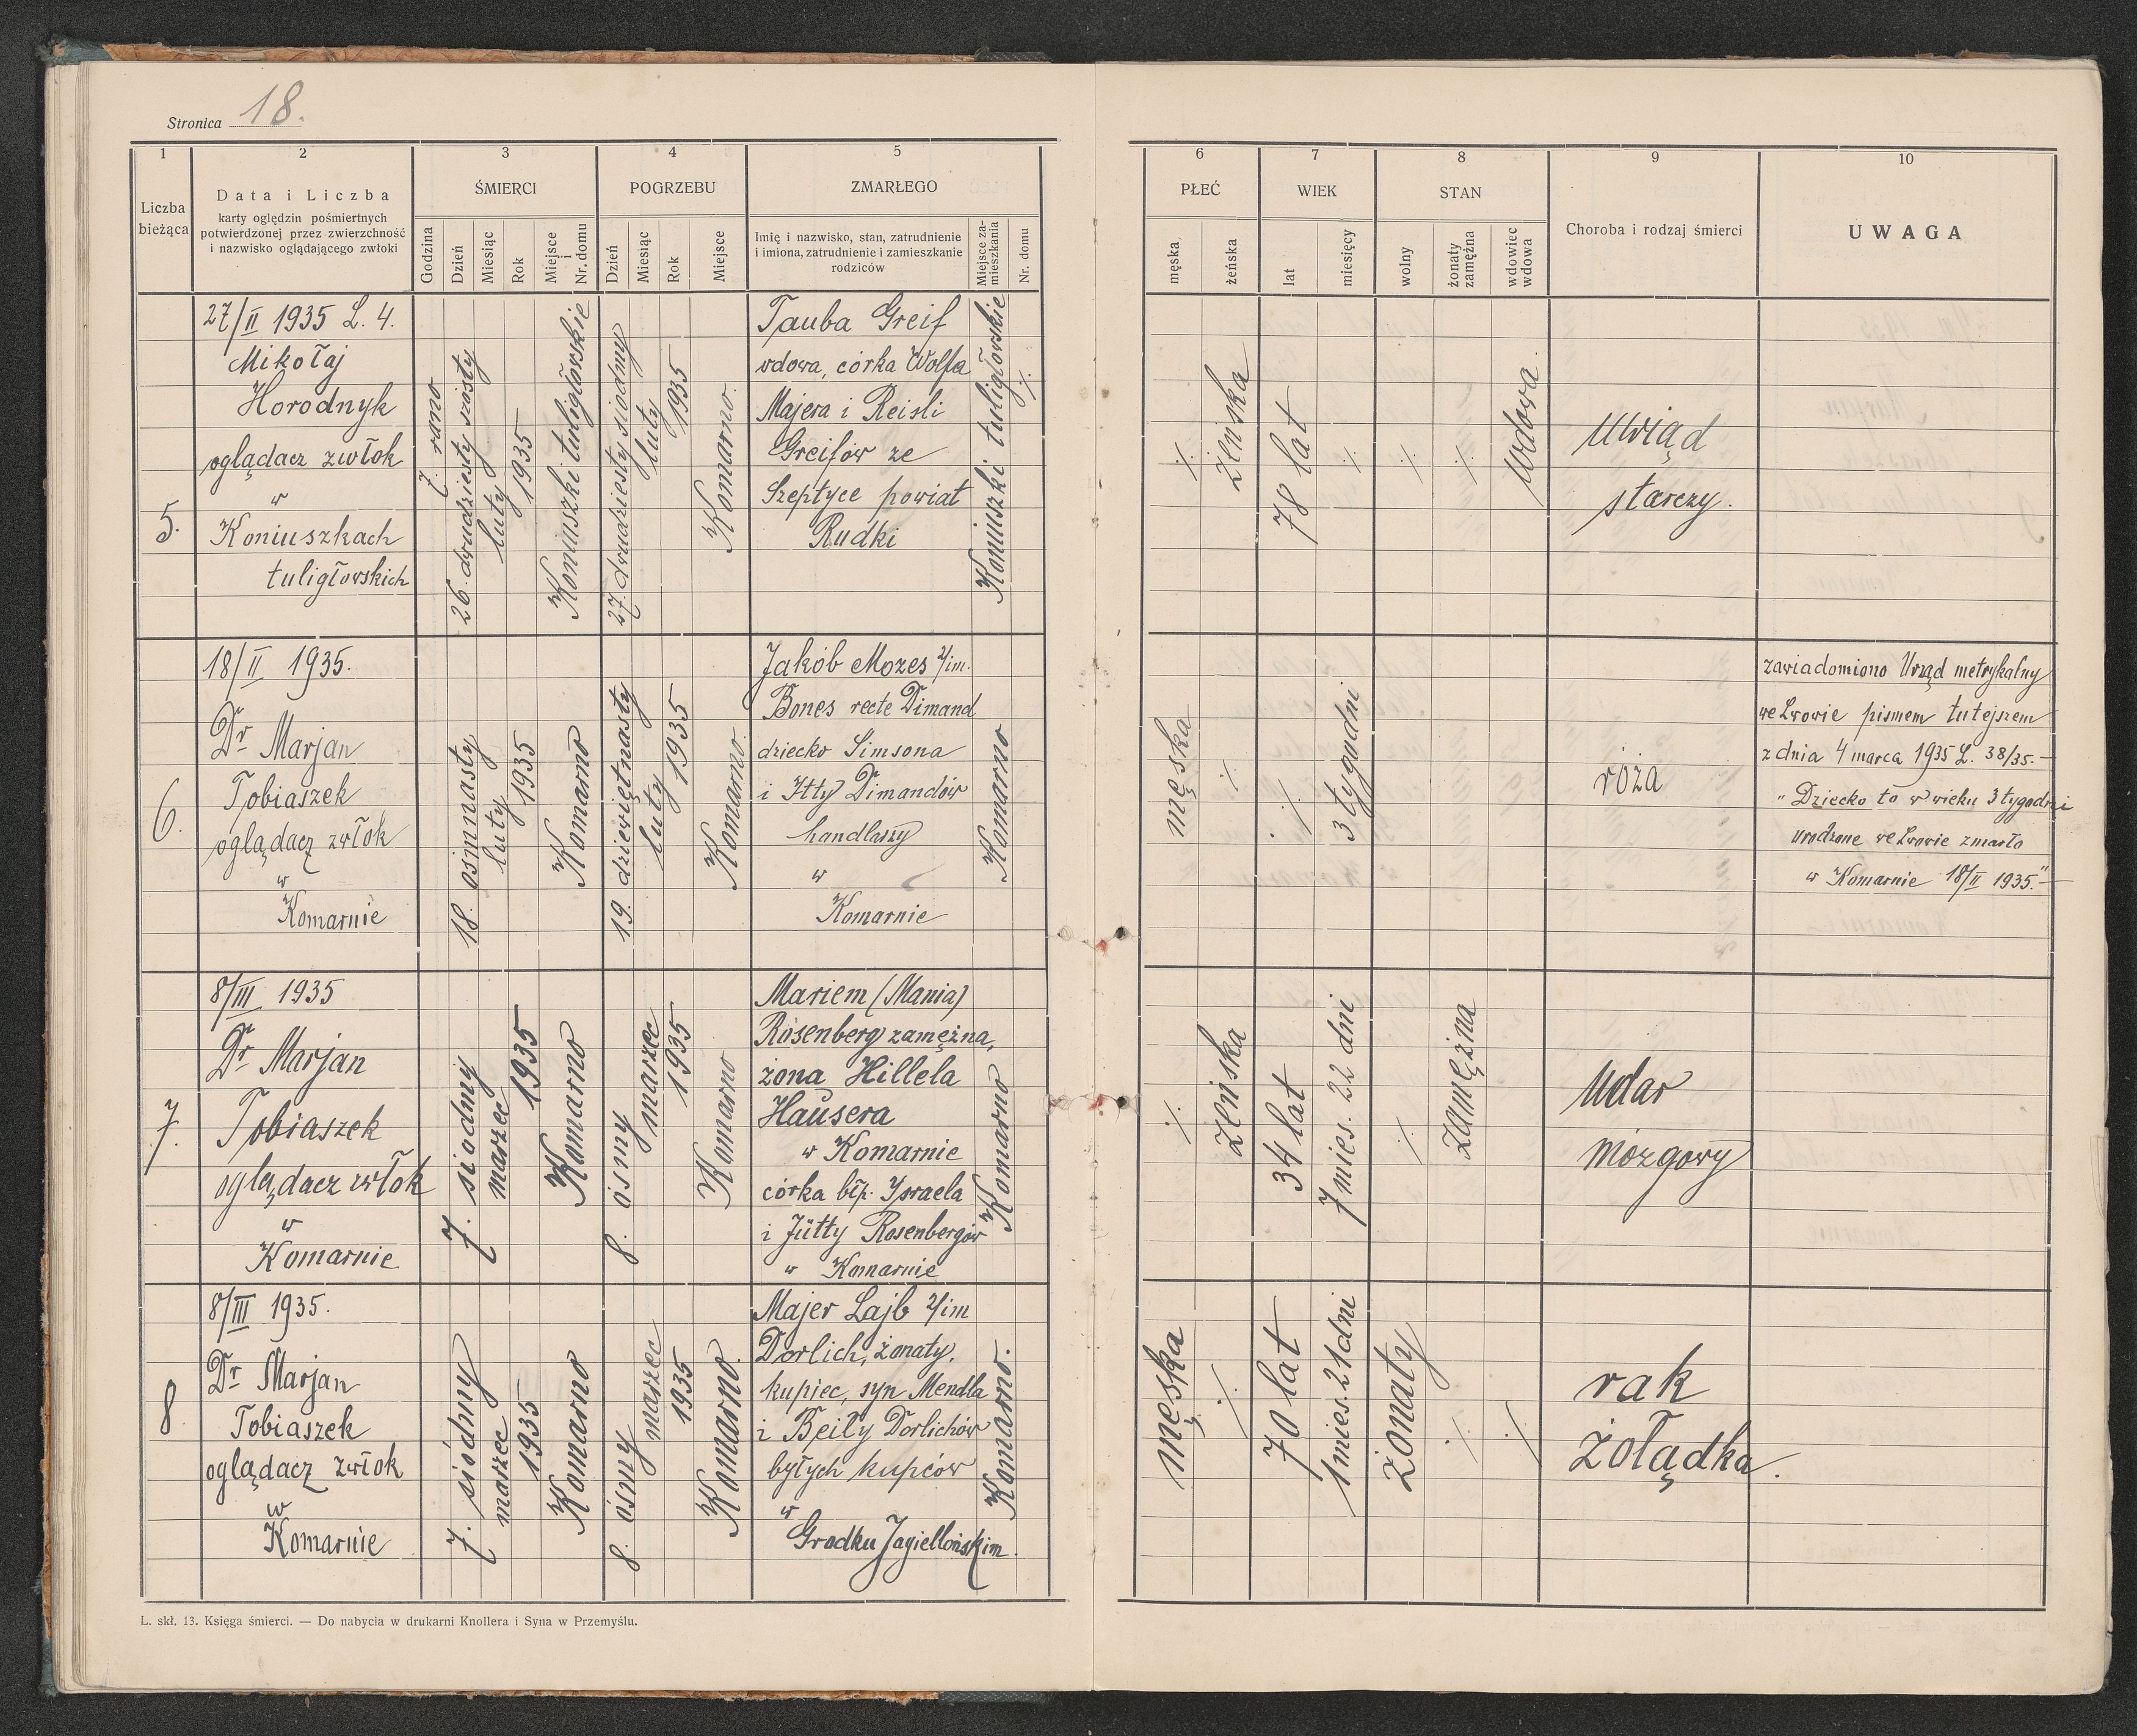 Stronica 18.
1 2 3 4 5 6 7 8 9 10
Liczba bieżąca
Data i Liczba
karty oględzin pośmiertnych
potwierdzonej przez zwierzchność
i nazwisko oglądającego zwłoki
ŚMIERCI
Godzina
Dzień
Miesiąc
Rok
Miejsce i Nr. domu
POGRZEBU
Dzień
Miesiąc
Rok
Miejsce
ZMARŁEGO
Imię i nazwisko, stan, zatrudnienie
i imiona, zatrudnienie i zamieszkanie
rodziców
Miejsce zamieszkania
Nr. domu
PŁEĆ
męska
żeńska
WIEK
lat
miesięcy
STAN
wolny
żonaty zamężna
wdowiec wdowa
Choroba i rodzaj śmierci
UWAGA
5.
27/II 1935 L. 4.
Mikołaj
Horodnyk
oglądacz zwłok
w
Koniuszkach
tuligłowskich
7. rano
26. dwudziesty szósty
luty
1935
Koniuszki tuligłowskie
27. dwudziesty siódmy
luty
1935
Komarno.
Tauba Greif
wdowa, córka Wolfa
Majera i Reisli
Greifów ze
Szeptyce powiat
Rudki
Koniuszki tuligłowskie
·/.
·/.
żeńska
78 lat
·/.
·/.
·/.
wdowa.
Uwiąd
starczy.
6.
18/II 1935.
Dr Marjan
Tobiaszek
oglądacz zwłok
w
Komarnie
18. ośmnasty
luty
1935
Komarno
19. dziewiętnasty
luty
1935
Komarno.
Jakób Mozes 2/im.
Bones recte Dimand
dziecko Simsona
i Itty Dimandów
handlarzy
w
Komarnie
Komarno
męska
·/.
·/.
3 tygodni
róża
zawiadomiono Urząd metrykalny
we Lwowie pismem tutejszem
z dnia 4 marca 1935 L. 38/35.-
"Dziecko to w wieku 3 tygodni
urodzone we Lwowie zmarło
w Komarnie 18/II 1935."-
7.
8/III 1935
Dr Marjan
Tobiaszek
oglądacz zwłok
w
Komarnie
7. siódmy
marzec
1935
Komarno
8. ósmy
marzec
1935
Komarno
Mariem (Mania)
Rosenberg zamężna,
żona Hillela
Hausera
w Komarnie
córka błp. Israela
i Jütty Rosenbergów
w Komarnie
Komarno
·/.
żeńska
34 lat
7 mies. 22 dni
·/.
zamężna
Udar
mózgowy
8
8/III 1935.
Dr Marjan
Tobiaszek
oglądacz zwłok
w
Komarnie
7. siódmy
marzec
1935
Komarno
8. ósmy
marzec
1935
Komarno.
Majer Lajb 2/im
Dorlich, żonaty,
kupiec, syn Mendla
i Beily Dorlichów
byłych kupców
w
Gródku Jagiellońskim.
Komarno.
męska
·/.
70 lat
1 mies. 21 dni
żonaty
·/.
·/.
rak
żołądka.
L. skł. 13. Księga śmierci. — Do nabycia w drukarni Knollera i Syna w Przemyślu.